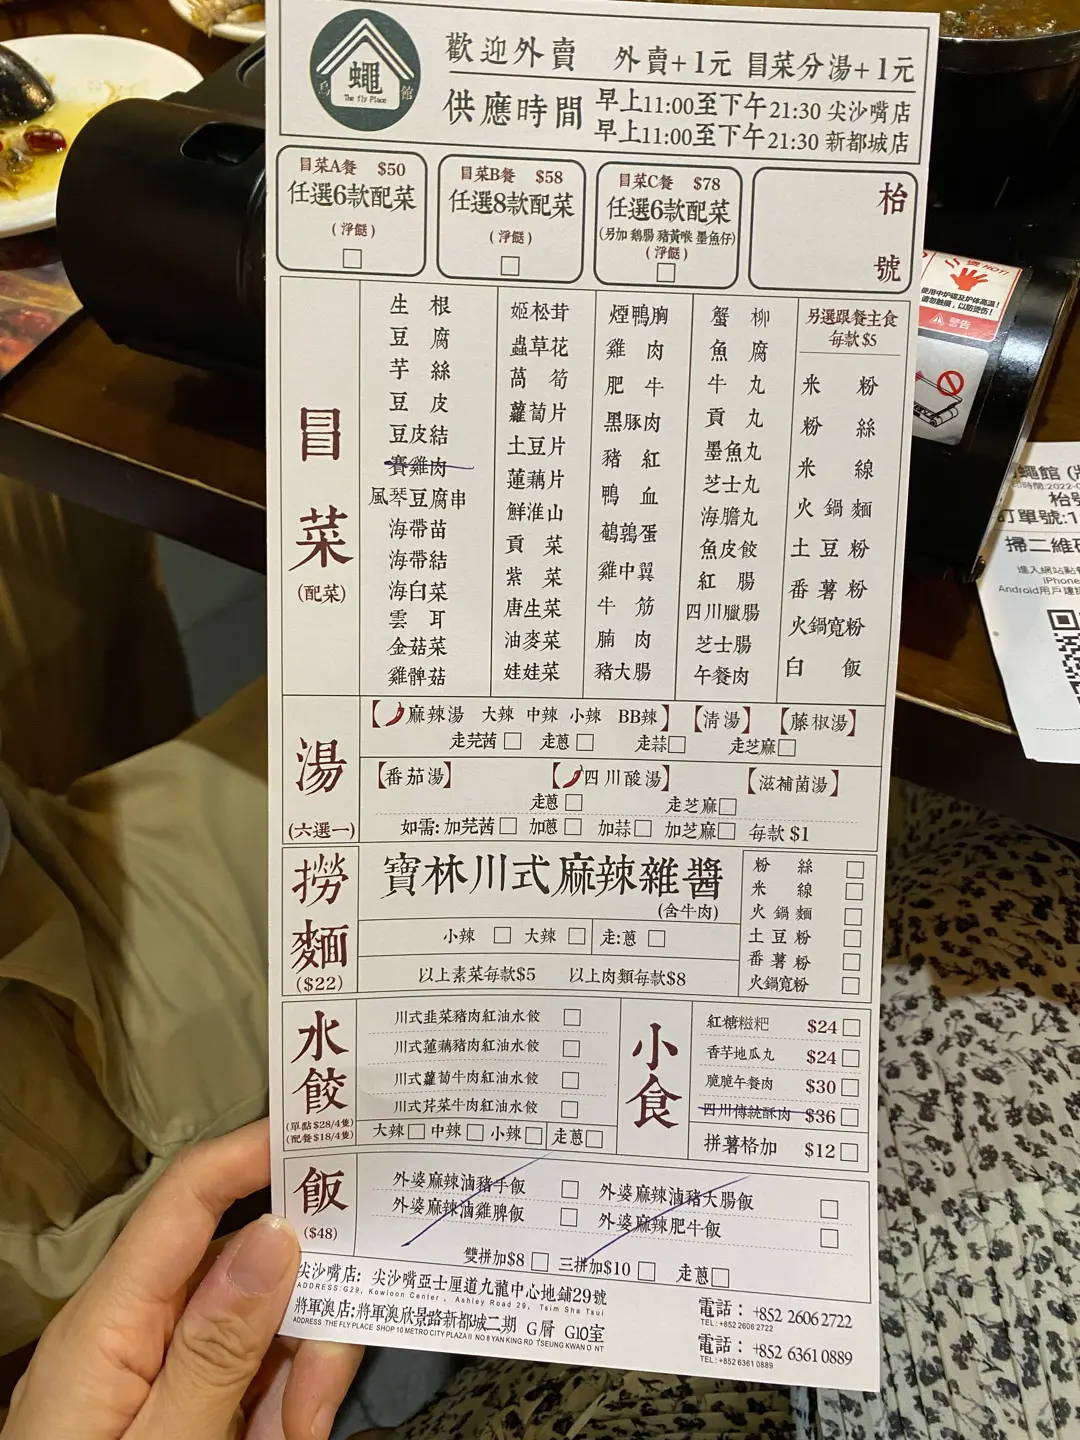 烏蠅館
The fly Place
歡迎外賣 外賣+1元 冒菜分湯+1元
供應時間 早上11:00至下午21:30 尖沙嘴店
早上11:00至下午21:30 新都城店
冒菜A餐 $50
任選6款配菜
(淨餸)
冒菜B餐 $58
任選8款配菜
(淨餸)
冒菜C餐 $78
任選6款配菜
(另加 鵝腸 豬黃喉 墨魚仔)
(淨餸)
枱號
冒菜
(配菜)
生根
豆腐
芋絲
豆皮
豆皮結
賽雞肉
風琴豆腐串
海帶苗
海帶結
海白菜
雲耳
金菇菜
雞髀菇
姬松茸
蟲草花
萵筍
蘿蔔片
土豆片
蓮藕片
鮮淮山
貢菜
紫菜
唐生菜
油麥菜
娃娃菜
煙鴨胸
雞肉
肥牛
黑豚肉
豬紅
鴨血
鵪鶉蛋
雞中翼
牛筋
腩肉
豬大腸
蟹柳
魚腐
牛丸
貢丸
墨魚丸
芝士丸
海膽丸
魚皮餃
紅腸
四川臘腸
芝士腸
午餐肉
另選跟餐主食
每款$5
米粉
粉絲
米線
火鍋麵
土豆粉
番薯粉
火鍋寬粉
白飯
湯
(六選一)
【麻辣湯 大辣 中辣 小辣 BB辣】【清湯】【藤椒湯】
走芫茜 走蔥 走蒜 走芝麻
【番茄湯】【四川酸湯】【滋補菌湯】
走蔥 走芝麻
如需: 加芫茜 加蔥 加蒜 加芝麻 每款 $1
撈麵
($22)
寶林川式麻辣雜醬
(含牛肉)
小辣 大辣 走:蔥
以上素菜每款$5 以上肉類每款$8
粉絲
米線
火鍋麵
土豆粉
番薯粉
火鍋寬粉
水餃
(單點 $28/4隻)
(配餐 $18/4隻)
川式韭菜豬肉紅油水餃
川式蓮藕豬肉紅油水餃
川式蘿蔔牛肉紅油水餃
川式芹菜牛肉紅油水餃
大辣 中辣 小辣 走蔥
小食
紅糖糍粑 $24
香芋地瓜丸 $24
脆脆午餐肉 $30
四川傳統酥肉 $36
拼薯格加 $12
飯
($48)
外婆麻辣滷豬手飯
外婆麻辣滷豬大腸飯
外婆麻辣滷雞髀飯
外婆麻辣肥牛飯
雙拼加$8 三拼加$10 走蔥
尖沙嘴店: 尖沙嘴亞士厘道九龍中心地鋪29號
ADDRESS:G29, Kowloon Center , Ashley Road 29, Tsim Sha Tsui
電話：+852 2606 2722
TEL:+852 2606 2722
將軍澳店:將軍澳欣景路新都城二期 G層 G10室
ADDRESS:THE FLY PLACE SHOP 10 METRO CITY PLAZA II NO 8 YAN KING RD TSEUNG KWAN O NT
電話：+852 6361 0889
TEL:+852 6361 0889
HOT!
使用中炉碟及炉体高温!
请勿触摸，以防烫伤!
警告
蠅館
訂單號:1
掃二維
iPhone
Android用戶